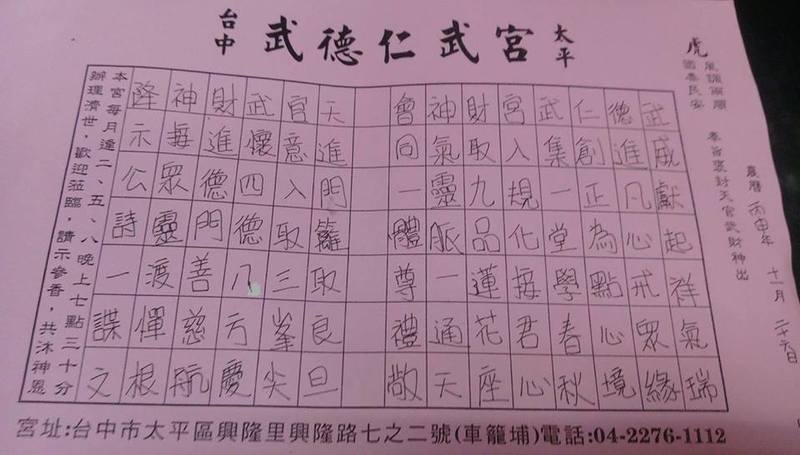 台中 武德仁武宮 太平
農曆 丙申年 十一月 二十六日
奉旨褒封天官武財神出
虎 風調雨順
國泰民安
武威獻起祥氣瑞
德進凡心戒眾緣
仁創正為點心境
武集一堂學春秋
宮入規化接君心
財取九品蓮花座
神氣靈脈一通天
會同一體尊禮敬
天進門籬取良旦
官意入取三峯尖
武懷四德八方慶
財進德門善慈航
神每眾靈渡憚根
降示公詩一諜文
本宮每月逢二、五、八晚上七點三十分
辦理濟世，歡迎蒞臨，請示參香，共沐神恩
宮址:台中市太平區興隆里興隆路七之二號(車籠埔)電話:04-2276-1112